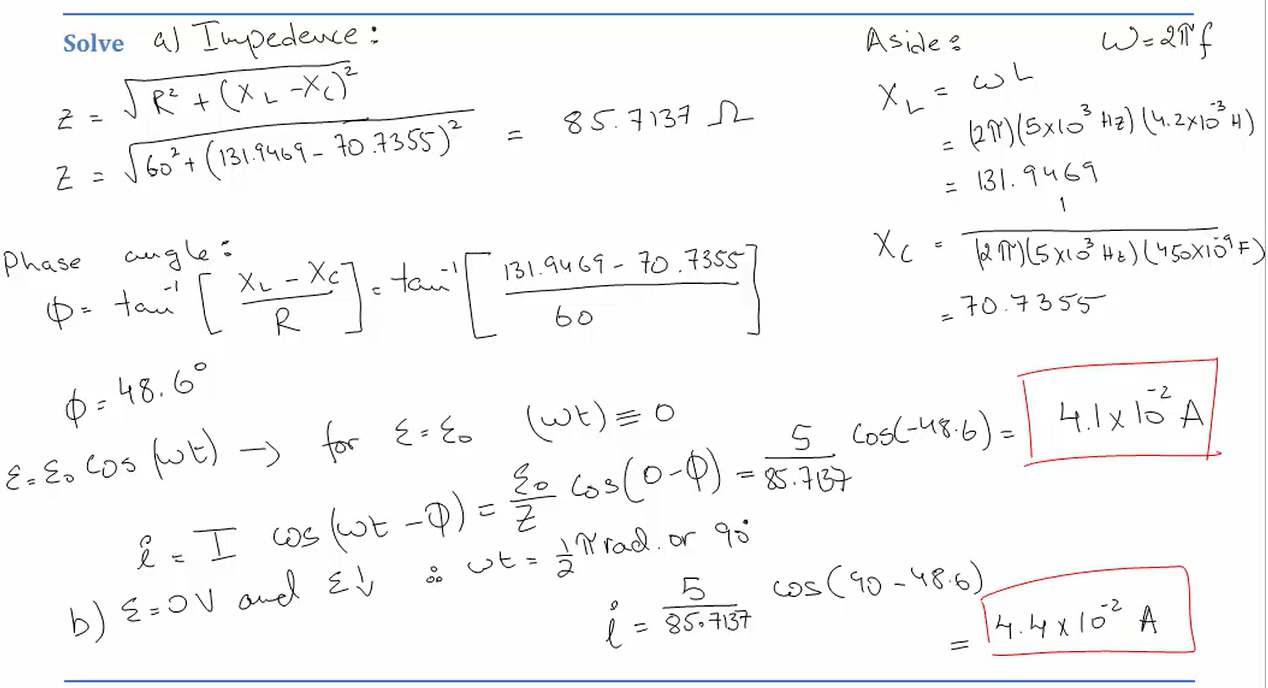 Solve a) Impedence:
Z = √(R² + (X_L - X_C)²)
Z = √(60² + (131.9469 - 70.7355)²) = 85.7137 Ω
Aside: ω = 2πf
X_L = ωL
= (2π)(5x10³ Hz)(4.2x10⁻³ H)
= 131.9469
X_C = 1 / (2π)(5x10³ Hz)(450x10⁻⁹ F)
= 70.7355
Phase angle:
Φ = tan⁻¹[(X_L - X_C) / R] = tan⁻¹[(131.9469 - 70.7355) / 60]
Φ = 48.6°
ε = ε₀ cos(ωt) → for ε = ε₀ (ωt) ≡ 0
i = I cos(ωt - Φ) = ε₀/Z cos(0-Φ) = 5/85.7137 cos(-48.6) = 4.1x10⁻² A
b) ε = 0V and ε↓ ∴ ωt = ½π rad. or 90°
i = 5/85.7137 cos(90 - 48.6)
= 4.4x10⁻² A